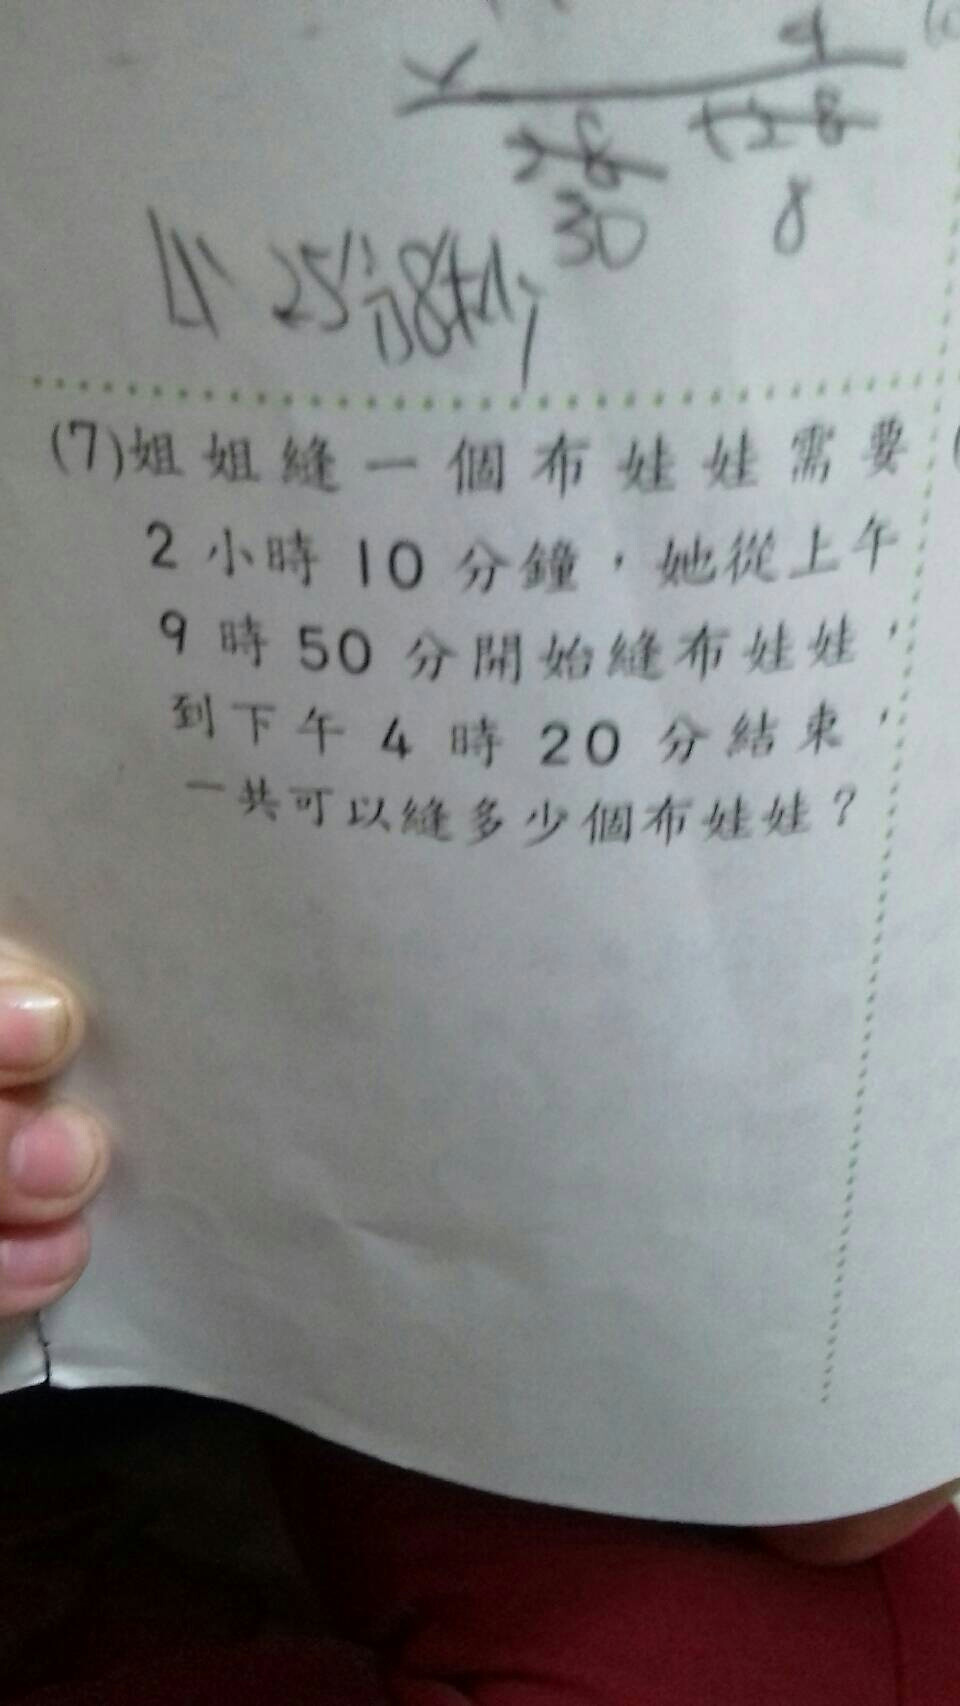 4
28 128
30 8
(7)姐姐縫一個布娃娃需要
2小時10分鐘，她從上午
9時50分開始縫布娃娃，
到下午4時20分結束，
一共可以縫多少個布娃娃？